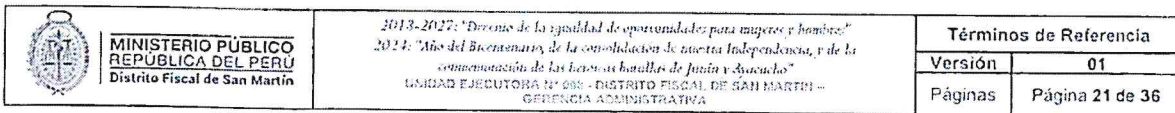 MINISTERIO PÚBLICO
REPÚBLICA DEL PERÚ
Distrito Fiscal de San Martín
2018-2027: "Decenio de la igualdad de oportunidades para mujeres y hombres"
2024: "Año del Bicentenario, de la consolidación de nuestra Independencia, y de la
conmemoración de las heroicas batallas de Junín y Ayacucho"
UNIDAD EJECUTORA N° - DISTRITO FISCAL DE SAN MARTIN –
GERENCIA ADMINISTRATIVA
Términos de Referencia
Versión 01
Páginas Página 21 de 36